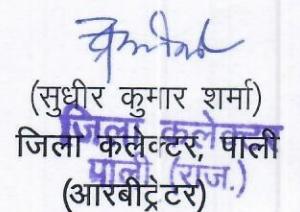 (सुधीर कुमार शर्मा)
जिला कलेक्टर, पाली
जिला कलेक्टर
पाली (राज.)
(आरबीट्रेटर)